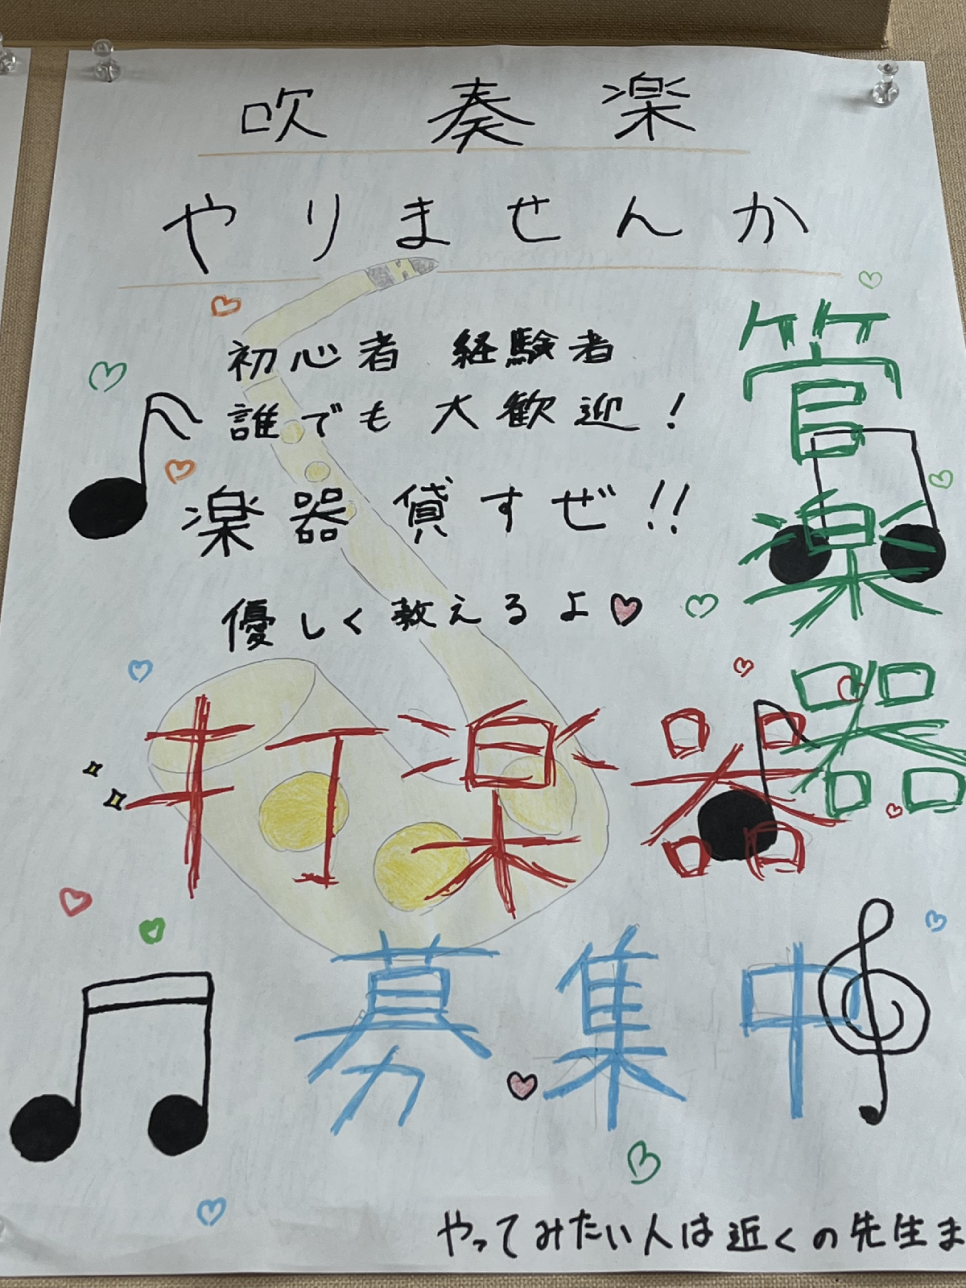 吹奏楽
やりませんか
初心者 経験者
誰でも大歓迎!
楽器貸すぜ!!
優しく教えるよ
管楽器
打楽器
募集中
やってみたい人は近くの先生ま